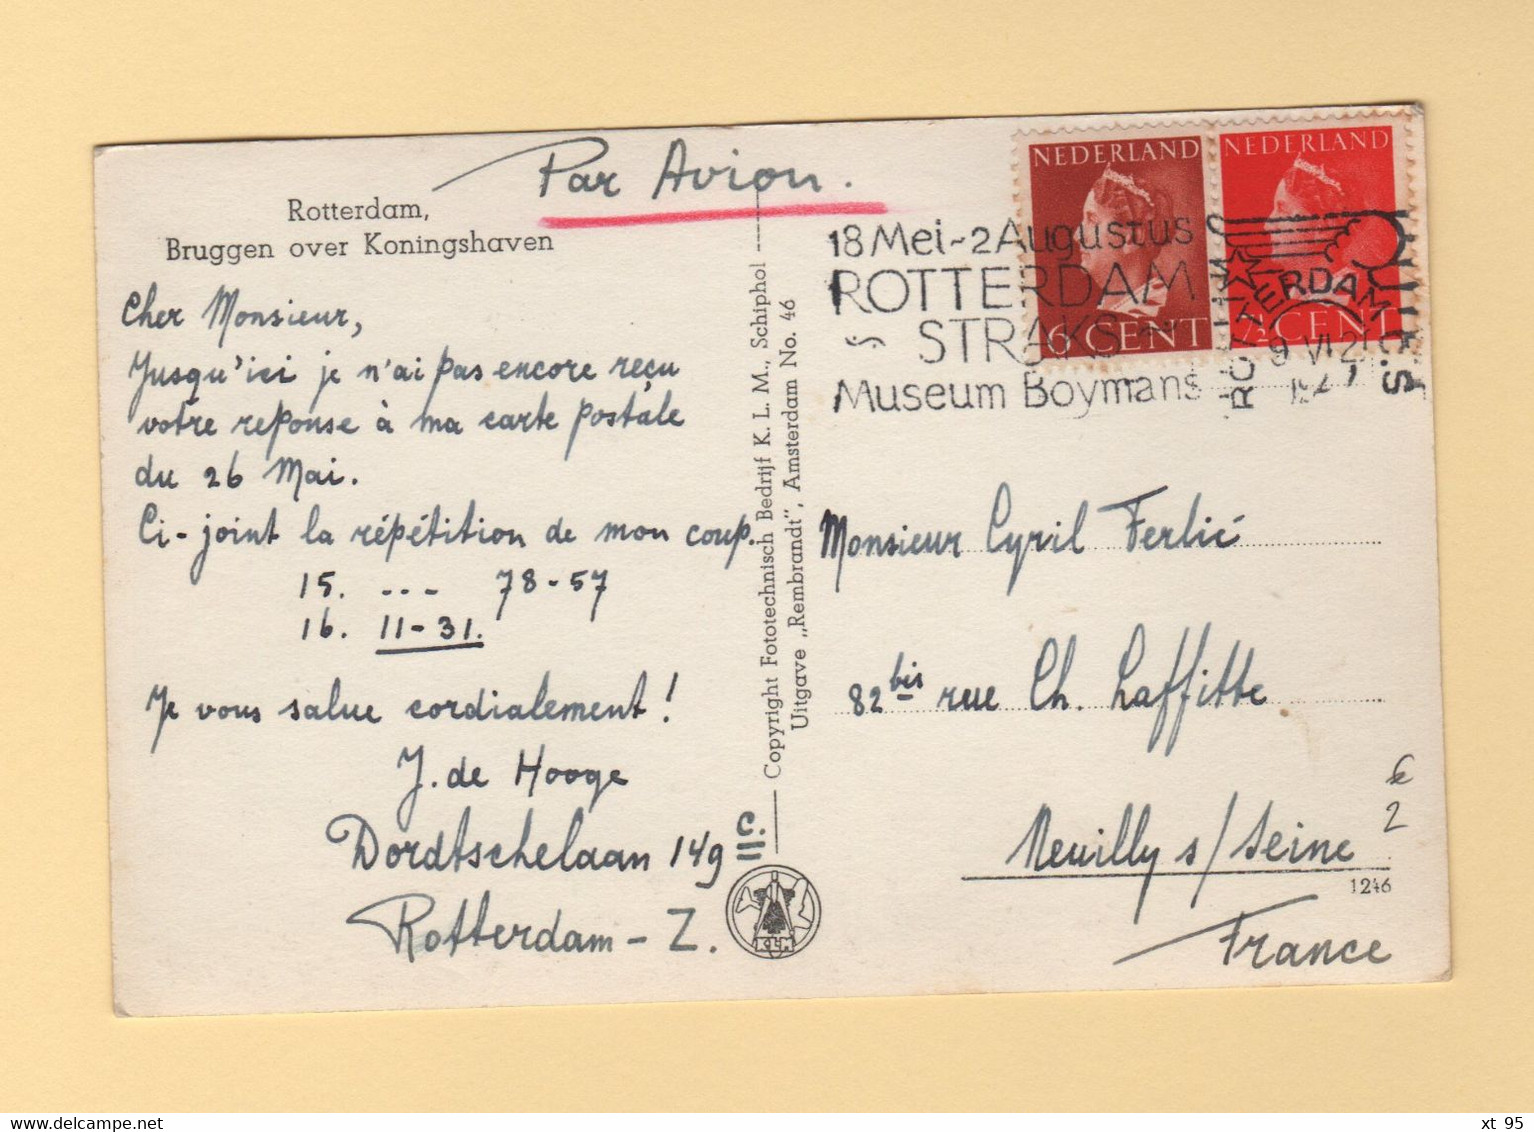 Par Avion.
Rotterdam,
Bruggen over Koningshaven
Cher Monsieur,
Jusqu'ici je n'ai pas encore reçu
votre reponse à ma carte postale
du 26 Mai.
Ci-joint la répétition de mon coup.
15. --- 78-57
16. 11-31.
Je vous salue cordialement!
J. de Hooge
Dordtschelaan 149 c.
Rotterdam - Z.
Copyright Fototechnisch Bedrijf K. L. M., Schiphol
Uitgave „Rembrandt", Amsterdam No. 46
KLM
NEDERLAND
6 CENT
NEDERLAND
7½ CENT
18 Mei - 2 Augustus
ROTTERDAM
STRAKS
Museum Boymans
ROTTERDAM
9 VI
Monsieur Cyril Ferlié
82 bis rue Ch. Laffitte
Neuilly s/Seine
1246
France
€
2
xt 95